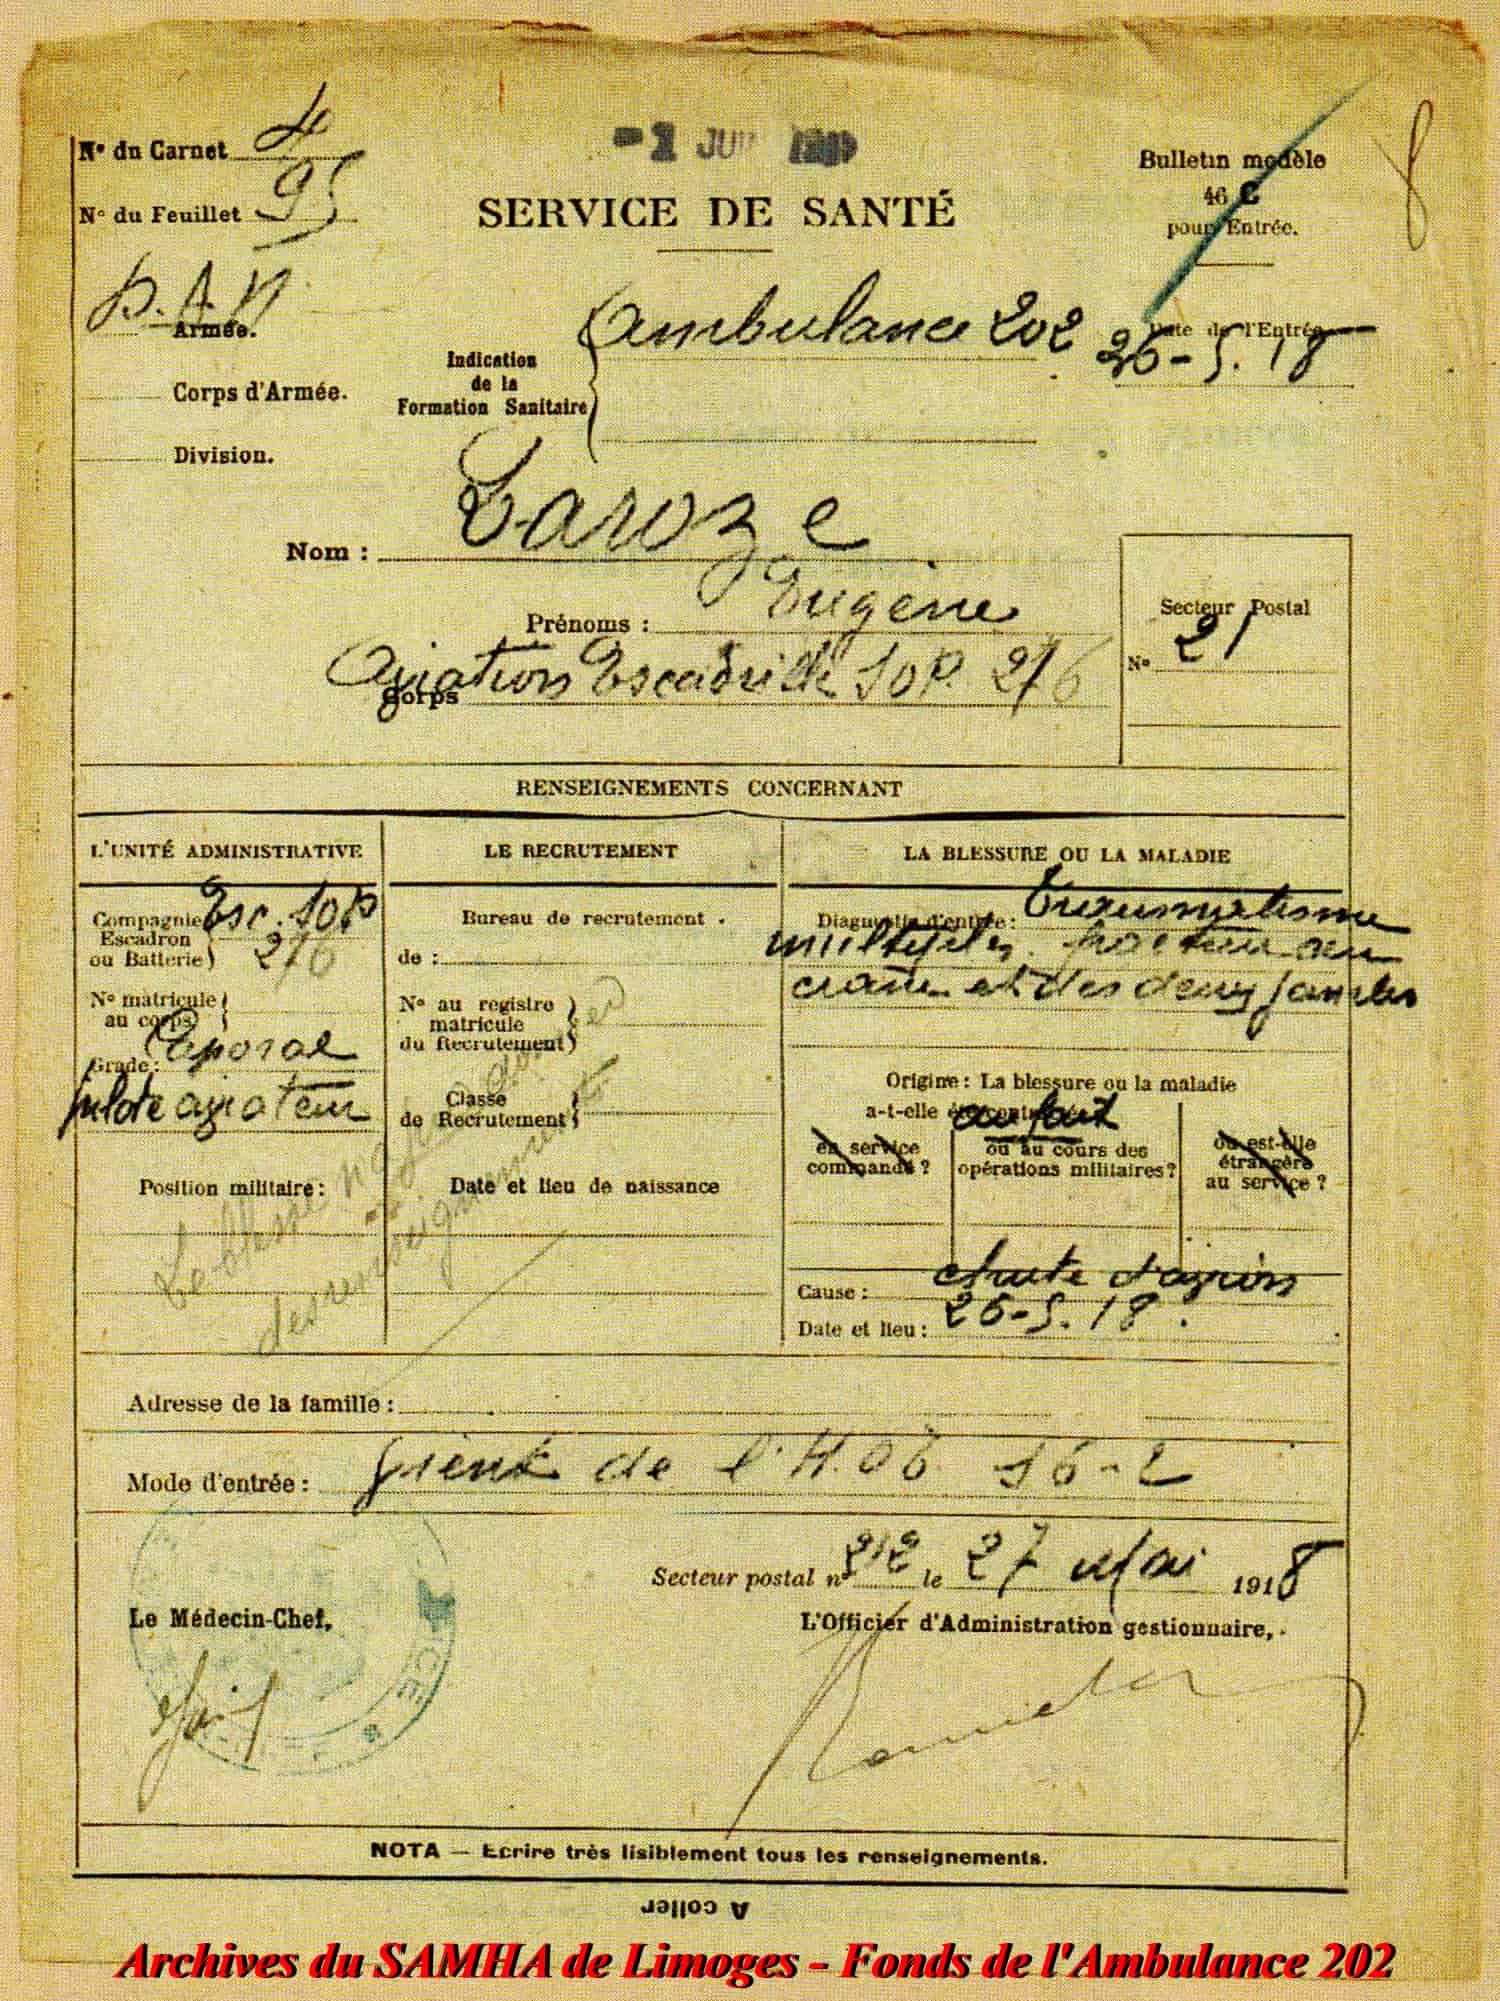 N° du Carnet 4
-1 JUI
Bulletin modèle
46 C
pour Entrée.
N° du Feuillet 95
SERVICE DE SANTÉ
D.A.N
Armée.
Corps d'Armée.
Division.
Indication
de la
Formation Sanitaire
Ambulance 202
Date de l'Entrée
26-5.18
Nom : Laroze
Prénoms : Eugène
Corps Aviation Escadrille SOP. 276
Secteur Postal
N° 21
RENSEIGNEMENTS CONCERNANT
L'UNITÉ ADMINISTRATIVE
Compagnie
Escadron
ou Batterie
Esc. SOP
276
N° matricule
au corps
Grade : Caporal
pilote aviateur
Position militaire :
LE RECRUTEMENT
Bureau de recrutement
de :
N° au registre
matricule
du Recrutement
Classe
de Recrutement
Date et lieu de naissance
Le blessé n'a pas donné
des renseignements
LA BLESSURE OU LA MALADIE
Diagnostic d'entrée : Traumatisme
multiples. fracture du
crane et des deux jambes
Origine : La blessure ou la maladie
a-t-elle été
au front
en service
commandé ?
ou au cours des
opérations militaires ?
ou est-elle
étrangère
au service ?
Cause : chute d'avion
Date et lieu : 26-5.18.
Adresse de la famille :
Mode d'entrée : Vient de l'H.O.E. 16-2
Secteur postal n° 212 le 27 Mai 1918
Le Médecin-Chef,
L'Officier d'Administration gestionnaire,
NOTA — Ecrire très lisiblement tous les renseignements.
A coller
Archives du SAMHA de Limoges - Fonds de l'Ambulance 202